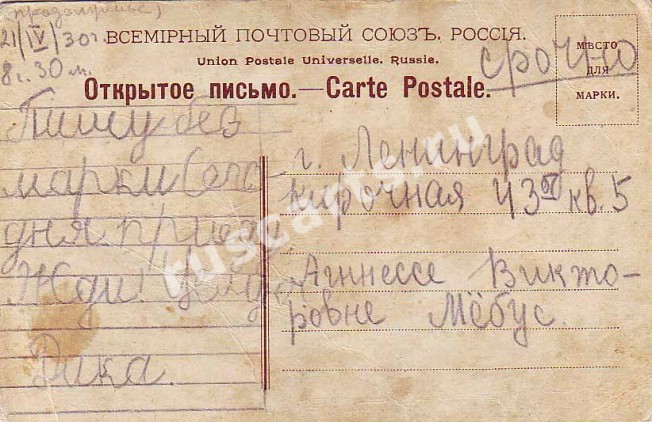 21/IV/30г.
8 ч. 30 м.
ВСЕМIРНЫЙ ПОЧТОВЫЙ СОЮЗЪ. РОССIЯ.
Union Postale Universelle. Russie.
Открытое письмо.—Carte Postale.
срочно
МѢСТО
ДЛЯ
МАРКИ.
Пишу без
марки Сего-
дня
Жди!
Дика.
г. Ленинград
Кирочная 43 кв. 5
Агнессе Викто-
ровне Мёбус.
ruscarts.ru